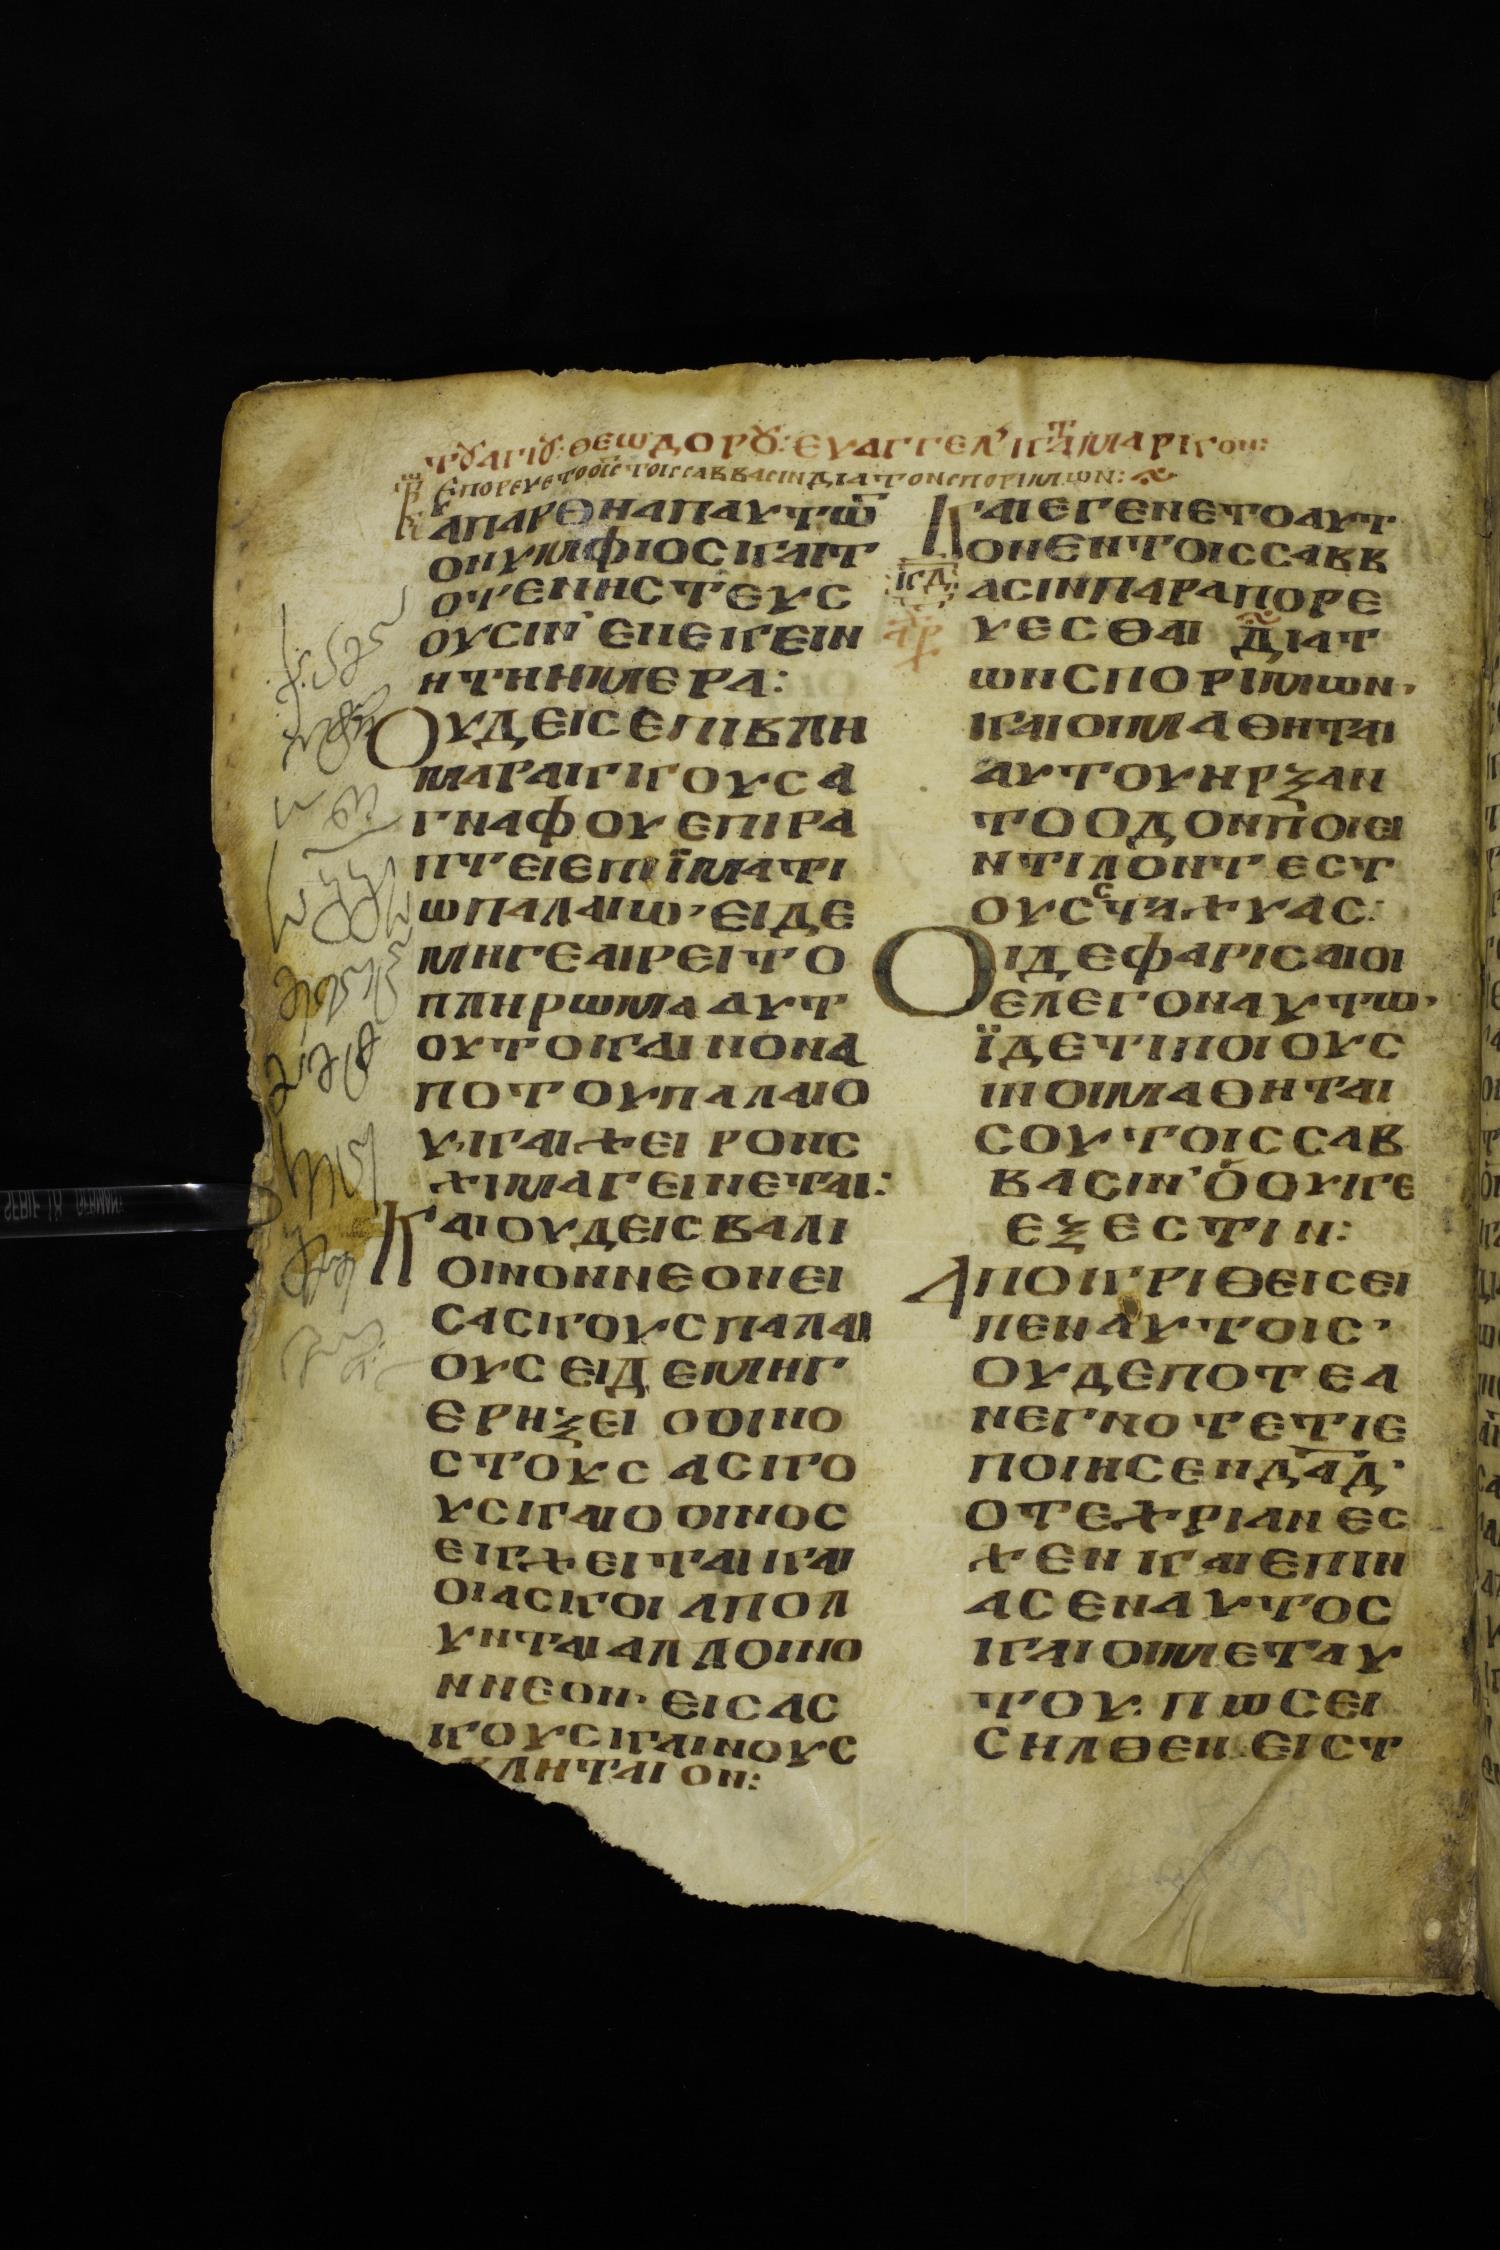 ΤȢ ΑΓΙȢ: ΘΕΩΔΟΡȢ: ΕΥΑΓΓΕΛ ΚΑΤ ΜΑΡΚΟΝ:
ΕΠΟΡΕΥΕΤΟ Ο ΙΣ ΤΟΙΣ ΣΑΒΒΑΣΙΝ ΔΙΑ ΤΟΝ ΣΠΟΡΙΜΩΝ:
ΑΠΑΡΘΗΑΠΑΥΤΩ̅
ΟΝΥΜΦΙΟϹΚΑΙΤ
ΟΤΕΝΗϹΤΕΥϹ
ΟΥϹΙΝ ΕΝΕΚΕΙΝ
ΗΤΗΗΜΕΡΑ:
ΟΥΔΕΙϹΕΠΙΒΛΗ
ΜΑΡΑΚΚΟΥϹΑ
ΓΝΑΦΟΥΕΠΙΡΑ
ΠΤΕΙΕΠΙΪΜΑΤΙ
ΩΠΑΛΑΙΩ·ΕΙΔΕ
ΜΗΓΕΑΙΡΕΙΤΟ
ΠΛΗΡΩΜΑΑΥΤ
ΟΥΤΟΚΑΙΝΟΝΑ
ΠΟΤΟΥΠΑΛΑΙΟ
Υ·ΚΑΙΧΕΙΡΟΝϹ
ΧΙΜΑΓΕΙΝΕΤΑΙ:
ΚΑΙΟΥΔΕΙϹΒΑΛΙ
ΟΙΝΟΝΝΕΟΝΕΙ
ϹΑϹΚΟΥϹΠΑΛΑΙ
ΟΥϹΕΙΔΕΜΗΓ
ΕΡΗΞΕΙΟΟΙΝΟ
ϹΤΟΥϹΑϹΚΟ
ΥϹΚΑΙΟΟΙΝΟϹ
ΕΚΧΕΙΤΑΙΚΑΙ
ΟΙΑϹΚΟΙΑΠΟΛ
ΥΝΤΑΙΑΛΛΟΙΝΟ
ΝΝΕΟΝ·ΕΙϹΑϹ
ΚΟΥϹΚΑΙΝΟΥϹ
ΒΛΗΤΑΙΟΝ:
ΚΑΙΕΓΕΝΕΤΟΑΥΤ
ΟΝΕΝΤΟΙϹϹΑΒΒ
ΚΔ
ΑϹΙΝΠΑΡΑΠΟΡΕ
ΥΕϹΘΑΙ ΔΙΑΤ
ΩΝϹΠΟΡΙΜΩΝ·
ΚΑΙΟΙΜΑΘΗΤΑΙ
ΑΥΤΟΥΗΡΞΑΝ
ΤΟΟΔΟΝΠΟΙΕΙ
ΝΤΙΛΟΝΤΕϹΤ
ΟΥϹϹΤΑΧΥΑϹ:
ΟΙΔΕΦΑΡΙϹΑΙΟΙ
ΕΛΕΓΟΝΑΥΤΩ·
ΪΔΕΤΙΠΟΙΟΥϹ
ΙΝΟΙΜΑΘΗΤΑΙ
ϹΟΥΤΟΙϹϹΑΒ
ΒΑϹΙΝ·ΟΟΥΚΕ
ΕΞΕϹΤΙΝ:
ΑΠΟΚΡΙΘΕΙϹΕΙ
ΠΕΝΑΥΤΟΙϹ·
ΟΥΔΕΠΟΤΕΑ
ΝΕΓΝΟΤΕΤΙΕ
ΠΟΙΗϹΕΝΔ̅Α̅Δ̅·
ΟΤΕΧΡΙΑΝΕϹ
ΧΕΝΚΑΙΕΠΙΝ
ΑϹΕΝΑΥΤΟϹ
ΚΑΙΟΙΜΕΤΑΥ
ΤΟΥ·ΠΩϹΕΙ
ϹΗΛΘΕΝΕΙϹΤ